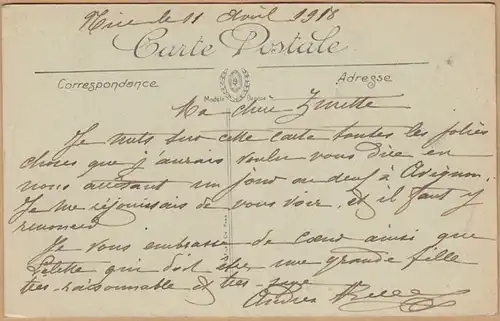 Nice le 11 Avril 1918
Carte Postale
Correspondance
Adresse
Modèle Déposé
Ma chère
Je mets sur cette carte toutes les jolies
choses que j'aurais voulu vous dire en
nous arrêtant un jour ou deux à Avignon.
Je me réjouissais de vous voir, et il faut y
renoncer
Je vous embrasse de cœur ainsi que
qui doit être une grande fille
très-raisonnable et très-sage